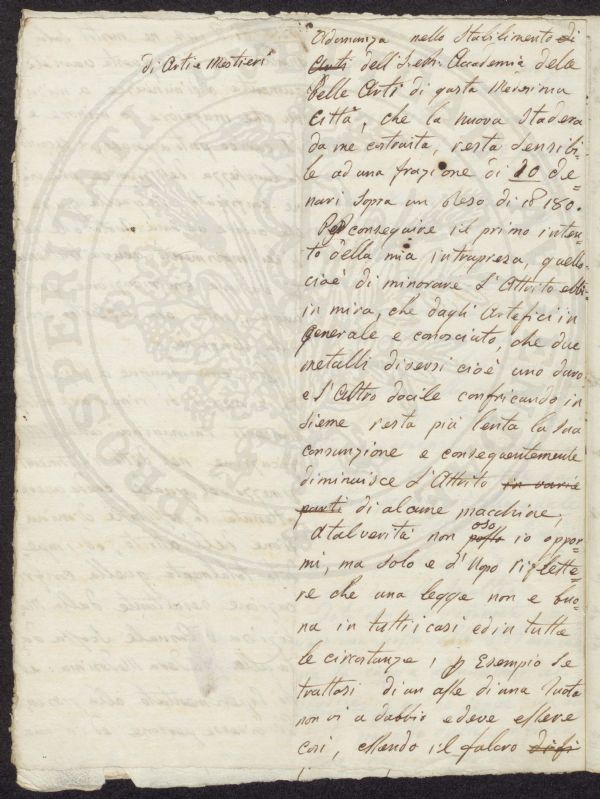 Adunanza nello Stabilimento di
di Arti e Mestieri
Arti dell' Accademia delle
Belle Arti di questa Medesima
Città, che la nuova Stadera
da me costruita, resta Sensibi=
le ad una frazione di 20 de=
nari sopra un Peso di 180.
Per conseguire il primo inten=
to della mia intrapresa, quello
cioè di minorare l'Attrito ebbi
in mira, che dagli Artefici in
generale e conosciuto, che due
metalli diversi cioè uno duro
e l'Altro docile confricando in
sieme resta più lenta la sua
consunzione e conseguentemente
diminuisce l'Attrito in varie
parti di alcune macchine;
Atal verità non posso oso io oppor=
mi, ma solo e d'Uopo riflette=
re che una legge non e buo=
na in tutti i casi ed in tutte
le circostanze, p Esempio Se
trattasi di un asse di una Ruota
non vi a dubbio e deve essere
così, essendo il fulcro di fi